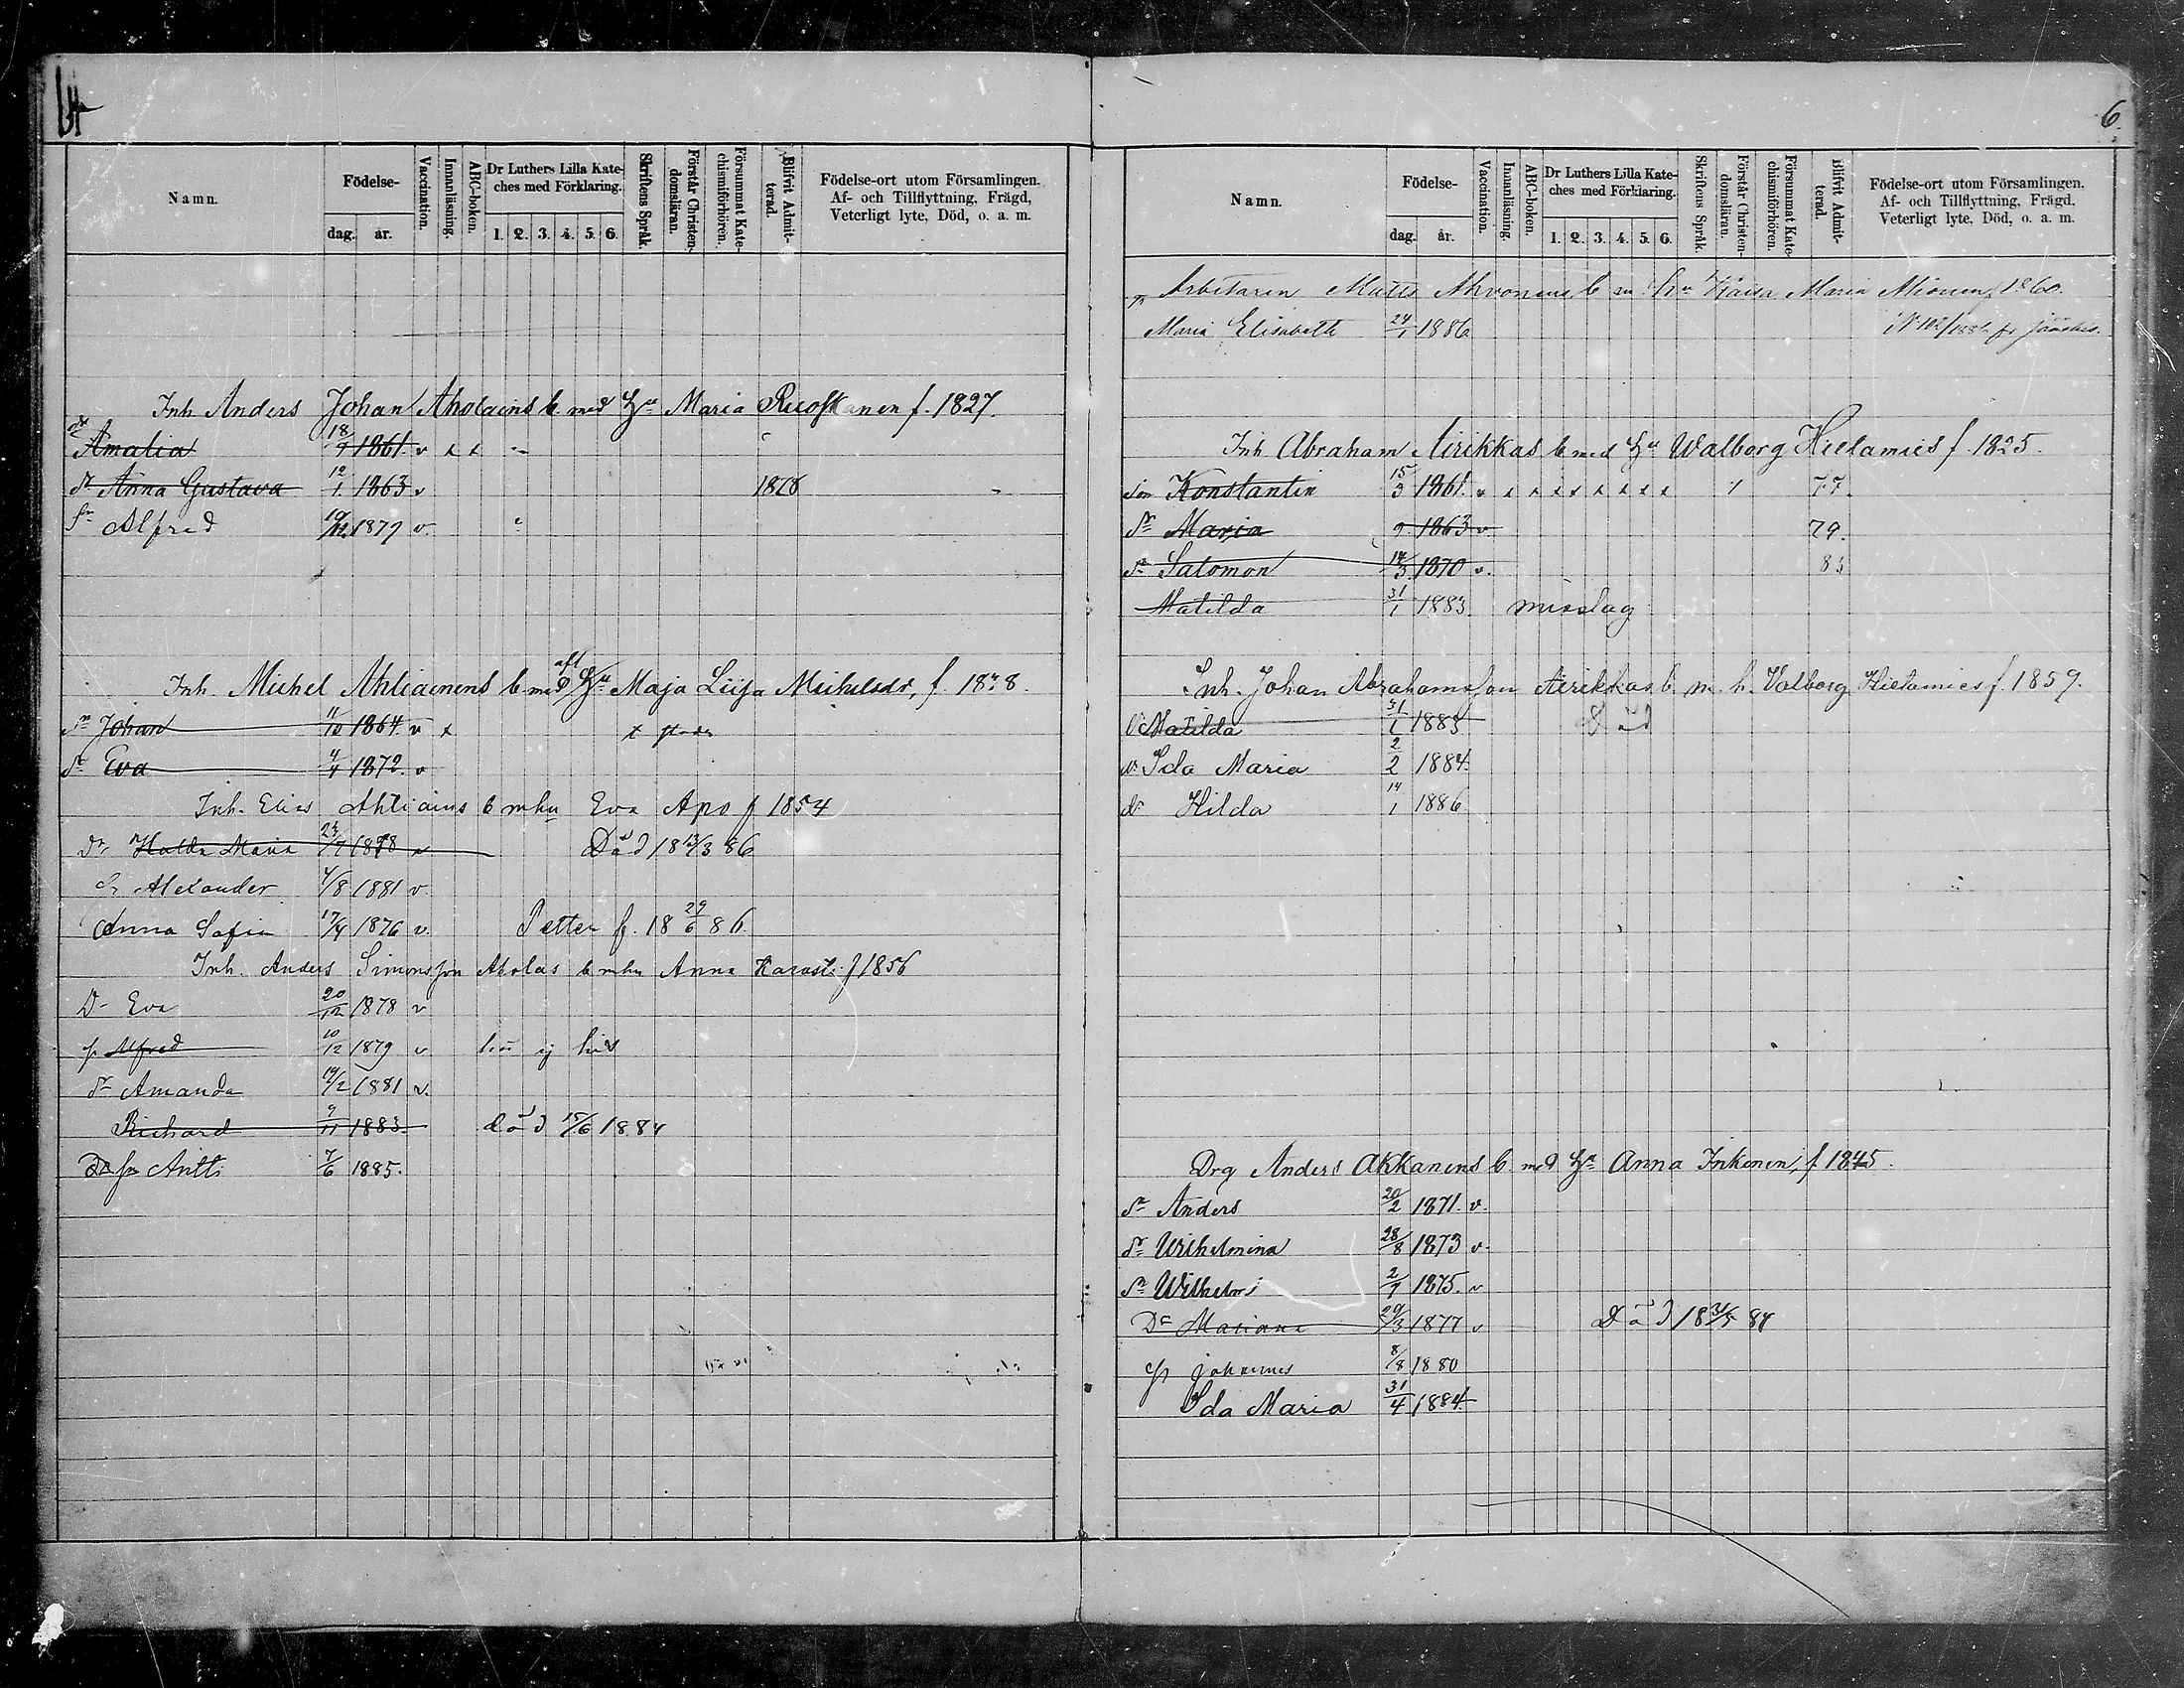 Namn.
Födelse-
dag.
år.
Vaccination.
Innanläsning.
ABC-boken.
Dr Luthers Lilla Kate-
ches med Förklaring.
1. 2. 3. 4. 5. 6.
Skriftens Språk.
Förstår Christen-
domsläran.
Försummat Kate-
chismiförhören.
Blifvit Admit-
terad.
Födelse-ort utom Församlingen.
Af- och Tillflyttning, Frägd,
Veterligt lyte, Död, o. a. m.
Inh. Anders Johan Aholains b. med Hu Maria Ruoskanen f. 1827.
dr Amalia 18/9 1861. v x x
dr Anna Gustava 12/1 1863 v 1878
sn Alfred 10/12 1879 v.
Inh. Michel Ahliainens b med afl Hu Maja Liisa Michelsdr, f. 1828.
sn Johan 11/12 1864. v x x
dr Eva 4/4 1872. v
Inh. Elias Ahliains b m hu Eva Apo f 1854
Dr Hulda Maria 23/7 1878 v Död 18 13/3 86
Sn Alexander 4/8 1881 v
Anna Sofia 17/4 1876 v. Petter f. 18 29/6 86.
Inh. Anders Simonsson Aholas b m hu Anna Karasti f 1856
Dr Eva 20/12 1878 v
sn Alfred 10/12 1879 v hör ej hit
dr Amanda 19/2 1881 v.
Richard 9/11 1883. död 15/6 1884
sn Antti 7/6 1885.
6.
Namn.
Födelse-
dag.
år.
Vaccination.
Innanläsning.
ABC-boken.
Dr Luthers Lilla Kate-
ches med Förklaring.
1. 2. 3. 4. 5. 6.
Skriftens Språk.
Förstår Christen-
domsläran.
Försummat Kate-
chismiförhören.
Blifvit Admit-
terad.
Födelse-ort utom Församlingen,
Af- och Tillflyttning, Frägd,
Veterligt lyte, Död, o. a. m.
Arbetaren Matts Ahvonens b m hu Kaisa Maria Mionen, 1860.
Maria Elisabeth 24/1 1886 fr Jääskis.
Inh. Abraham Airikkas b med Hu Walborg Hietamies f. 1825.
son Konstantin 15/3 1861. v x x x x x x x x 77.
dr Maria 9. 1863 v 79.
sn Salomon 14/3 1870 v.
Matilda 31/1 1883. misslag
Inh. Johan Abrahamsson Airikkas b m. h. Valborg Hietamies f. 1859.
Matilda 31/1 1883 Död
dr Ida Maria 2/2 1884.
dr Hilda 14/1 1886
Drg Anders Akkanens b med Hu Anna Inkenen, f. 1845.
sn Anders 20/2 1871. v.
dr Wilhelmina 28/8 1873 v.
sn Wilhelm 2/7 1875. v
Dr Mariana 29/3 1877 v Död 18 31/5 84
sn Johannes 8/8 1880
Ida Maria 31/4 1884.